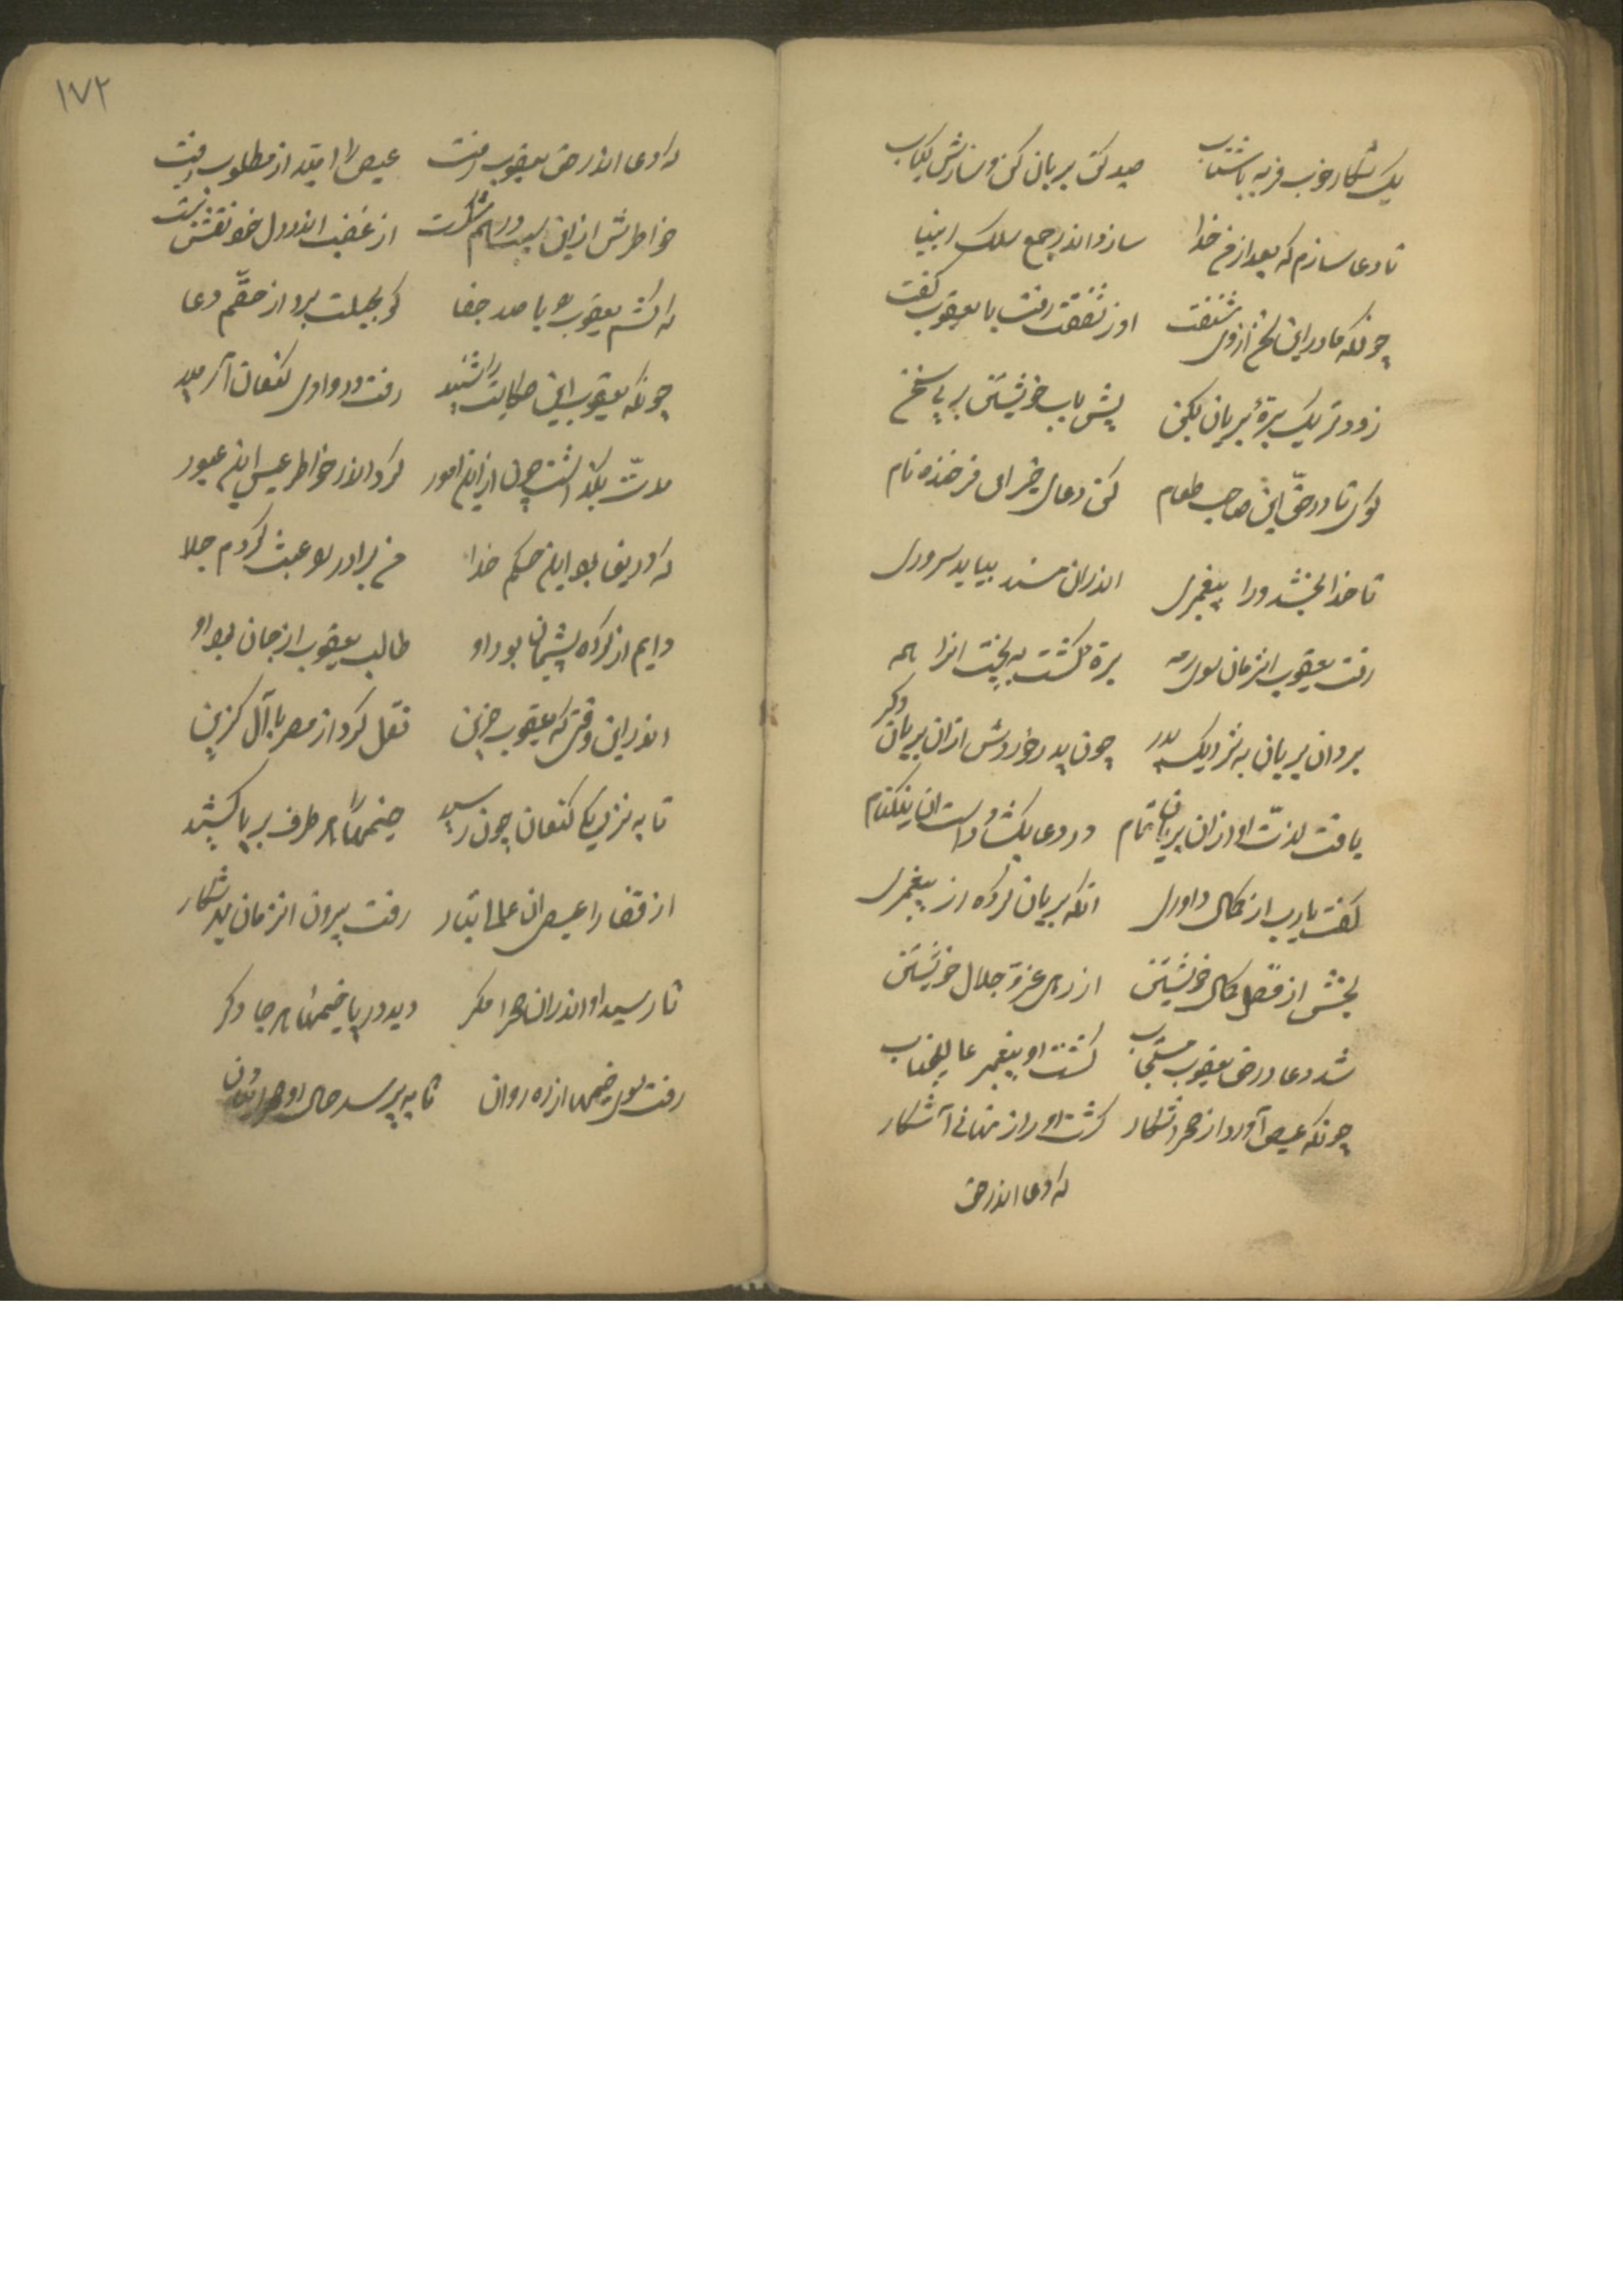 یک شکار خوب فربه باشتاب صید کن بریان کن و سازش کباب
تا دعا سازم که بعد از من خدا سازد اندر جمع سلک انبیا
چونکه مادر این سخن از وی شنفت او ز شفقت رفت با یعقوب گفت
زودتر یک برهٔ بریان بکن پیش باب خویشتن بر بی سخن
کوی تا در حق این صاحب طعام کن دعای خیر ای فرخنده نام
تا خدا بخشد ورا پیغمبری اندران مسند بیاید سروری
رفت یعقوب انزمان سوی رمه برهٔ کشت به پخت انرا همه
برد ان بریان به نزدیک پدر چون پدر خوردش ازان بریان دکر
یافت لذت او ازان بریان تمام در دعا بکشاد دست ان نیکنام
گفت یارب از کمال داوری انکه بریان کرده از پیغمبری
بخشش از فضل کمال خویشتن از ره عز و جلال خویشتن
شد دعا در حق یعقوب مستجاب کشت او پیغمبر عالیجناب
چونکه عیص آورد از صحرا شکار کشت او را راز پنهانی آشکار
که دعا اندر حق
١٧٢
که دعا اندر حق یعقوب رفت عیص را امید از مطلوب رفت
خاطرش از این سبب درهم شکست از غضب اندر دل خود نقش بست
که کشم یعقوب را با صد جفا کو بحیلت برد از حقم دعا
چونکه یعقوب این حکایت را شنید رفت در وادی کنعان آرمید
مدت بگذاشت چون از این امور کرد اندر خاطر عیص این عبور
که دریغا بود این حکم خدا من برادر را عبث کردم جلا
دایم از کرده پشیمان بود او طالب یعقوب از جان بود او
اندر این وقتی که یعقوب حزین نقل کرد از مصر با آل کزین
تا به نزدیک کنعان چون رسید خیمها را هر طرف بر پا کشید
از قضا را عیص ان عالی تبار رفت بیرون انزمان بهر شکار
تا رسید او اندران صحرا مکر دید در پا خیمها هر جا دکر
رفت سوی خیمها از ره روان تا به پرسد حال او